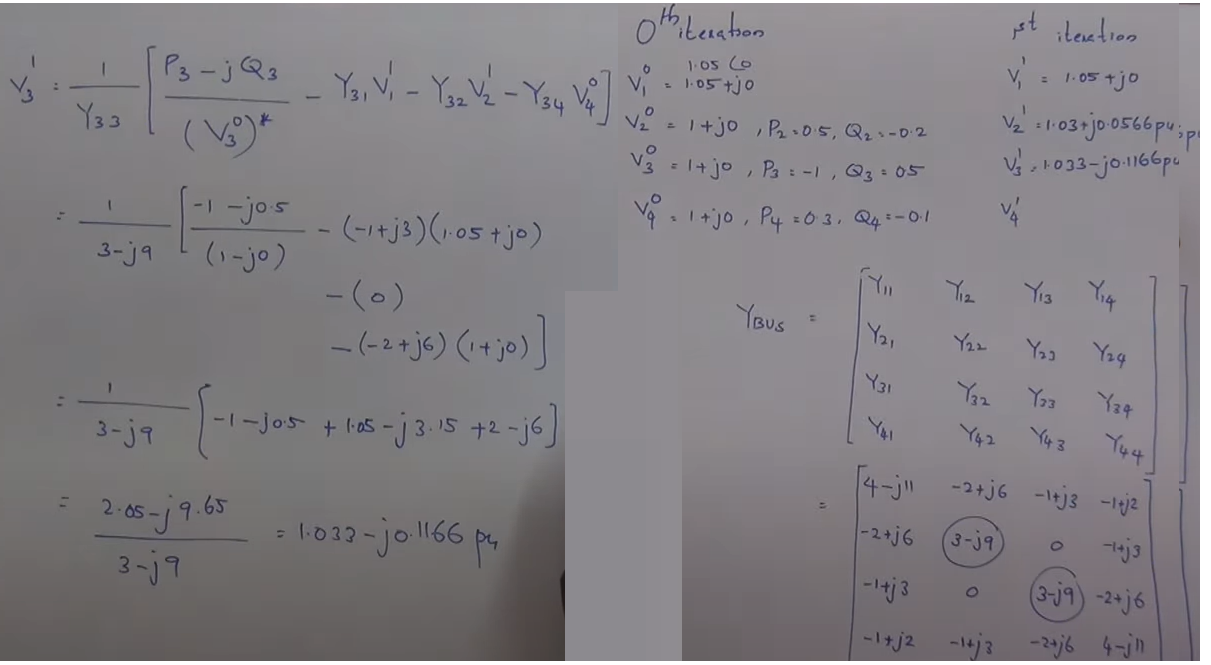 V₃¹ = 1/Y₃₃ [ (P₃ - jQ₃)/(V₃⁰)* - Y₃₁ V₁¹ - Y₃₂ V₂¹ - Y₃₄ V₄⁰ ]
= 1/(3-j9) [ (-1 - j0.5)/(1-j0) - (-1+j3)(1.05+j0)
- (0)
- (-2+j6) (1+j0) ]
= 1/(3-j9) [ -1-j0.5 + 1.05-j3.15 +2-j6 ]
= (2.05-j9.65)/(3-j9) = 1.033-j0.1166 pu
0th iteration
1.05 ∠0
V₁⁰ = 1.05+j0
V₂⁰ = 1+j0 , P₂=0.5, Q₂=-0.2
V₃⁰ = 1+j0 , P₃=-1 , Q₃=05
V₄⁰ = 1+j0, P₄=0.3, Q₄=-0.1
1st iteration
V₁¹ = 1.05+j0
V₂¹ = 1.03+j0.0566pu; pu
V₃¹ = 1.033-j0.1166pu
V₄¹
Y_BUS = [ Y₁₁ Y₁₂ Y₁₃ Y₁₄
Y₂₁ Y₂₂ Y₂₃ Y₂₄
Y₃₁ Y₃₂ Y₃₃ Y₃₄
Y₄₁ Y₄₂ Y₄₃ Y₄₄ ]
= [ 4-j11 -2+j6 -1+j3 -1+j2
-2+j6 3-j9 0 -1+j3
-1+j3 0 3-j9 -2+j6
-1+j2 -1+j3 -2+j6 4-j11